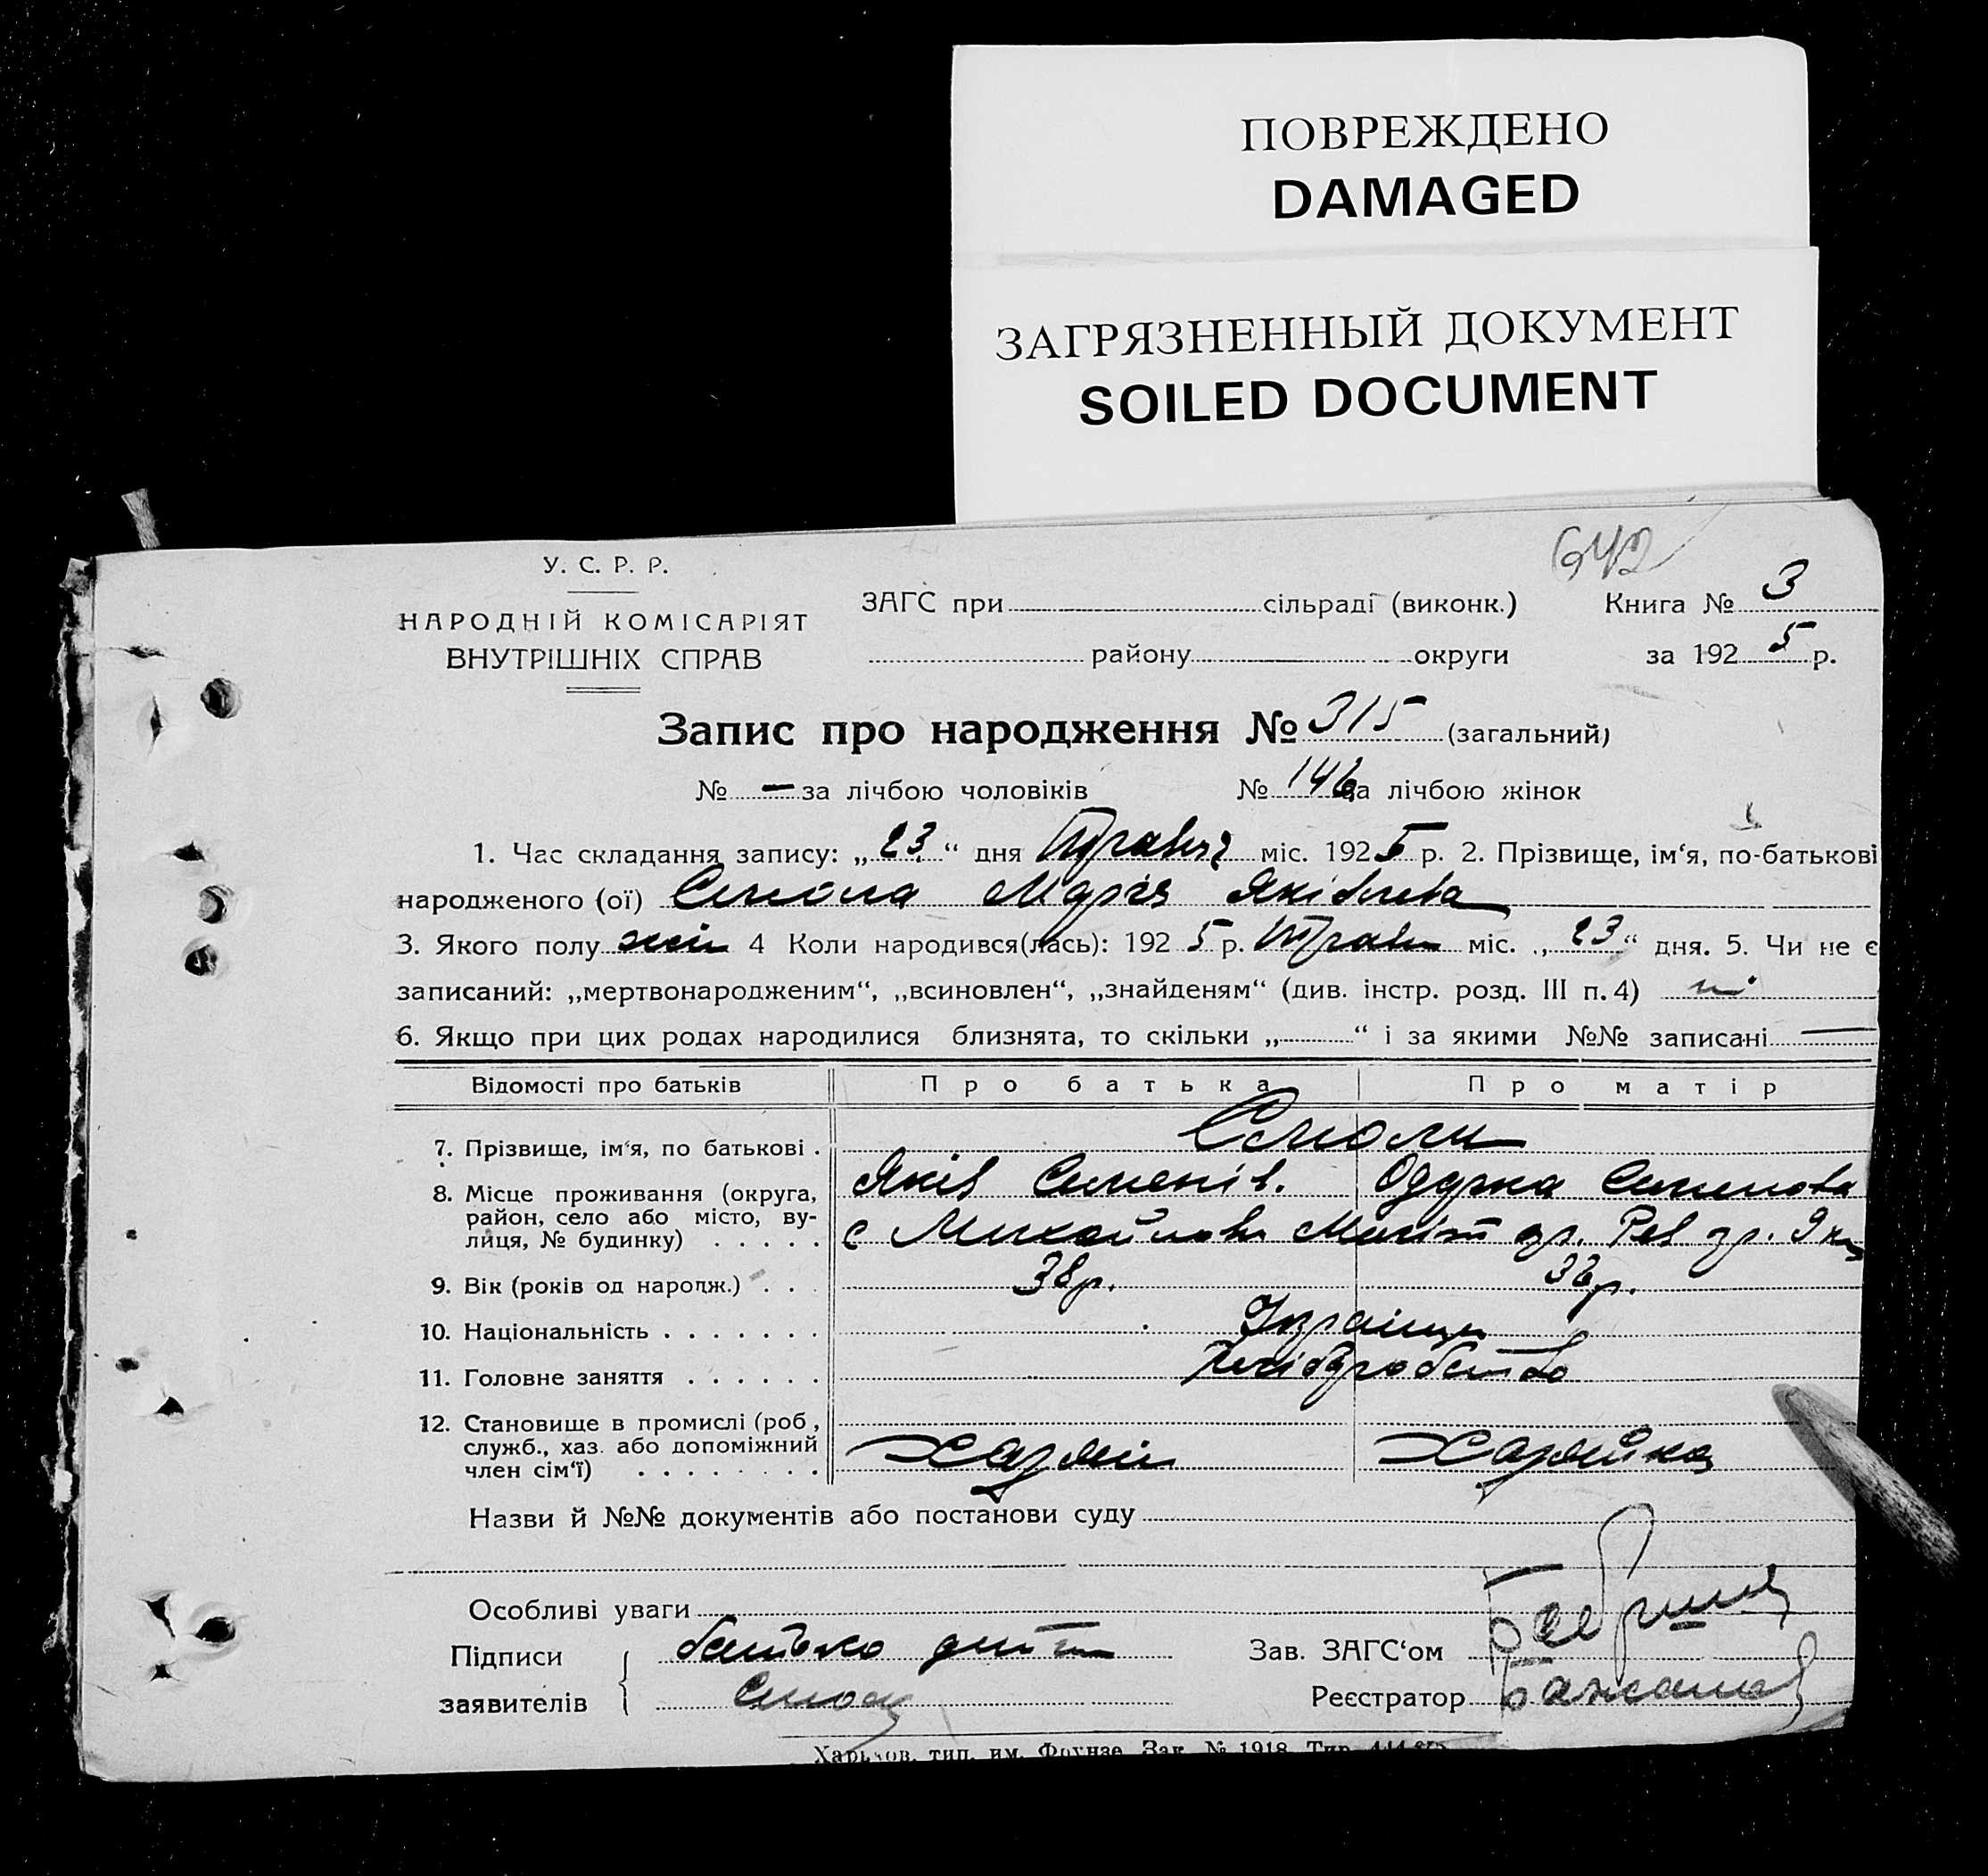 ПОВРЕЖДЕНО
DAMAGED
ЗАГРЯЗНЕННЫЙ ДОКУМЕНТ
SOILED DOCUMENT
642
У. С. Р. Р.
НАРОДНІЙ КОМІСАРІЯТ
ВНУТРІШНІХ СПРАВ
ЗАГС при сільраді (виконк.) Книга № 3
району округи за 1925 р.
Запис про народження № 315 (загальний)
№ — за лічбою чоловіків № 146 за лічбою жінок
1. Час складання запису: „23“ дня Травня міс. 1925 р. 2. Прізвище, ім‘я, по-батькові
народженого (ої) Смола Марія Яківлевна
3. Якого полу жін 4 Коли народився(лась): 1925 р. Травн міс. „23“ дня. 5. Чи не є
записаний: „мертвонародженим“, „всиновлен“, „знайденям“ (див. інстр. розд. III п. 4) ні
6. Якщо при цих родах народилися близнята, то скільки „ “ і за якими №№ записані —
Відомості про батьків Про батька Про матір
7. Прізвище, ім‘я, по батькові . Смоли
Яків Семенів. Одарка Семенова
8. Місце проживання (округа, район, село або місто, вулиця, № будинку) . . . . . с
9. Вік (років од народж.) . . . 38 р. 36 р.
10. Національність . . . . . . . Українци
11. Головне заняття . . . . . . Хліборобство
12. Становище в промислі (роб, служб., хаз. або допоміжний член сім‘ї) . . . . . . . . Хазяїн Хазяйка
Назви й №№ документів або постанови суду
Особливі уваги
Підписи батько дит
заявителів Смола
Зав. ЗАГС‘ом
Реєстратор
Харьков, тип. им. Фрунзе. Зак. № 1918. Тир.